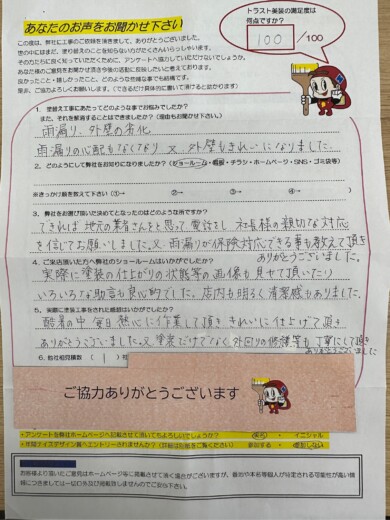 あなたのお声をお聞かせ下さい
トラスト美装の満足度は
何点ですか?
100 /100
この度は、弊社に工事のご依頼を頂きまして、ありがとうございました。
是非、ご協力よろしくお願いします。(できるだけ具体的に書いて頂けると助かります)
1. 塗替え工事にあたってどのような事でお悩みでしたか?
また、それを解消することはできましたか?(理由もお聞かせ下さい。)
雨漏り、外壁の劣化
雨漏りの心配もなくなり 又、外壁もきれいになりました。
2. どのようにして弊社をお知りになりましたか? (ショールーム・看板・チラシ・ホームページ・SNS・ゴミ袋等)
※きっかけ順を教えて下さい ①→ ②→ ③→ ④→
3. 弊社をお選び頂いた決めてとなったのはどのような所ですか?
できれば地元の業者さんをと思って電話をし 社長様の親切な対応
を信じてお願いしました。又、雨漏りが保険対応できる事も教えて頂き
ありがとうございました。
4. ご来店頂いた方へ弊社のショールームはいかがでしたか?
実際に塗装の仕上がりの状態等の画像も見せて頂いたり
いろいろな助言も良心的でした。店内も明るく清潔感もありました。
5. 実際に塗装工事をされた感想はいかがでしたか?
酷暑の中 毎日 熱心に作業して頂き きれいに仕上げて頂き
ありがとうございました。又、塗装だけでなく外回りの修繕等も丁寧にして頂き
ありがとうございました
6. 他社相見積数 ( 1 )社
ご協力ありがとうございます
・アンケートを弊社ホームページへ記載させて頂いてもよろしいでしょうか?
イニシャル
参加する ・ 参加しない